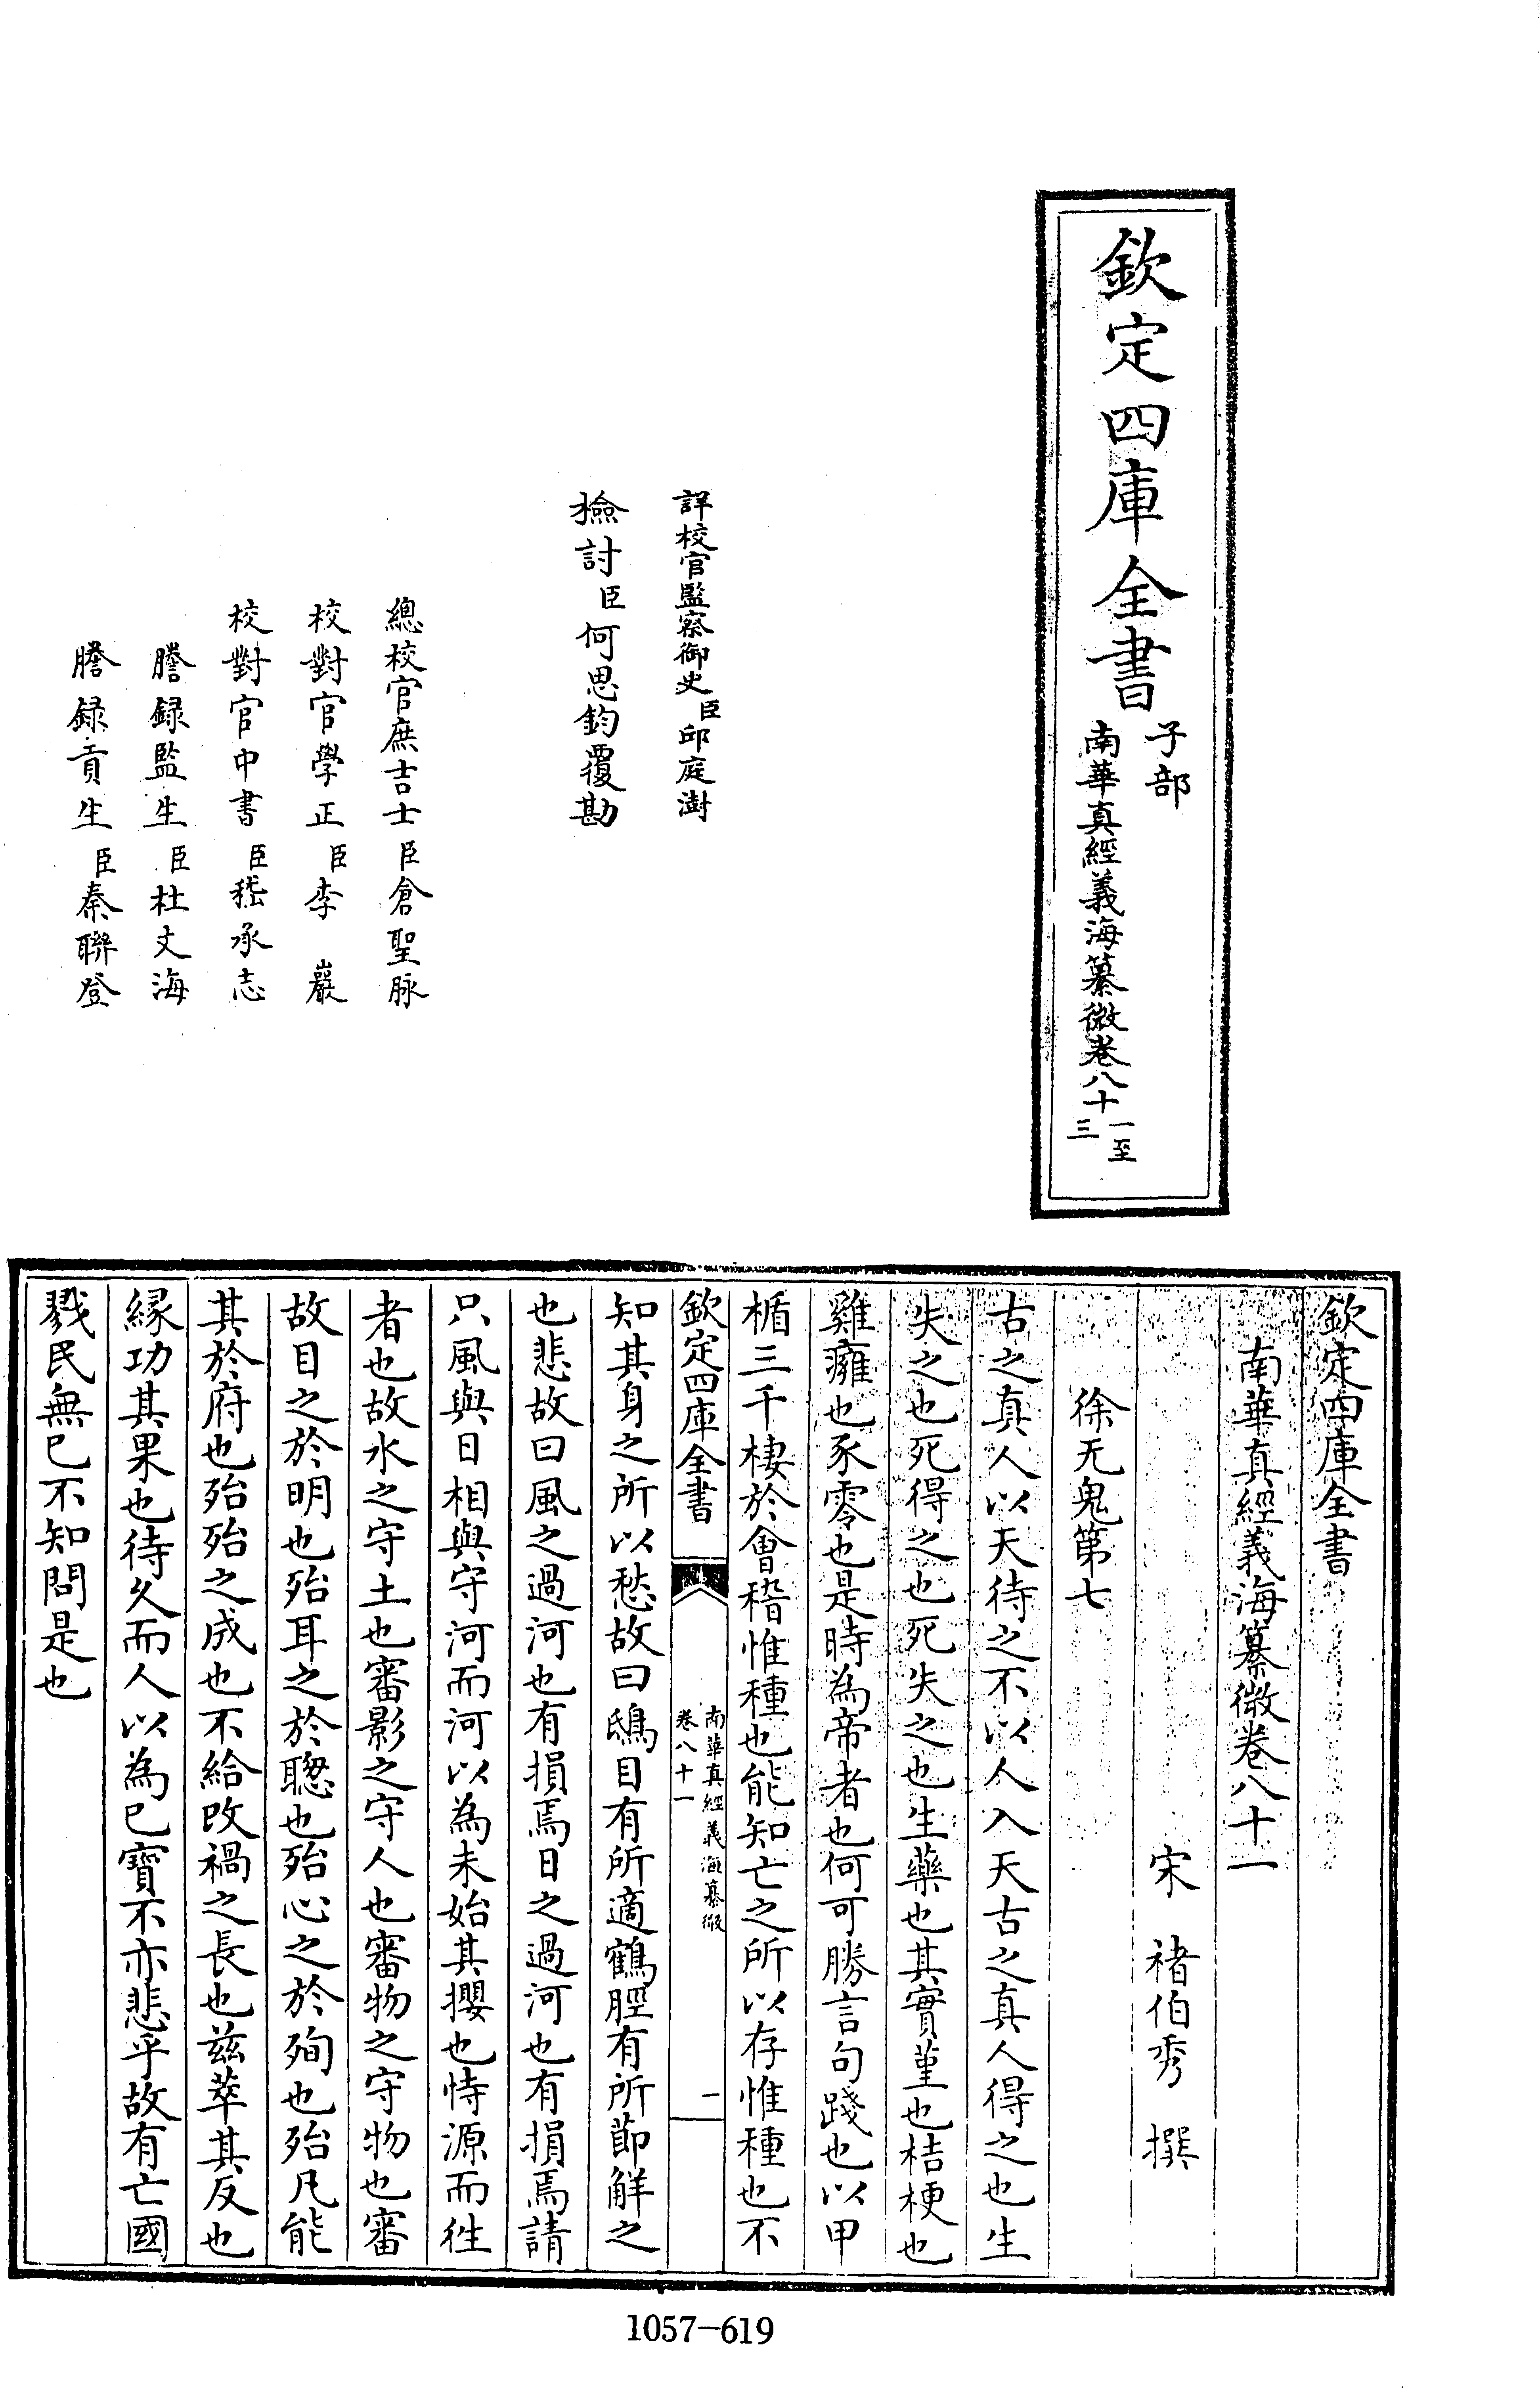 欽定四庫全書
子部
南華真經義海纂微卷八十一至三
詳校官監察御史臣邱庭澍
檢討臣何思鈞覆勘
總校官庶吉士臣倉聖脉
校對官學正臣李巖
校對官中書臣嵇承志
謄録監生臣杜文海
謄録貢生臣秦聯登
欽定四庫全書
南華真經義海纂微卷八十一
宋 褚伯秀 撰
徐无鬼第七
古之真人以天待之不以人入天古之真人得之也生
失之也死得之也死失之也生藥也其實堇也桔梗也
雞癕也豕零也是時為帝者也何可勝言句踐也以甲
楯三千棲於會稽惟種也能知亡之所以存惟種也不
欽定四庫全書
南華真經義海纂微
卷八十一
一
知其身之所以愁故曰鴟目有所適鶴脛有所節解之
也悲故曰風之過河也有損焉日之過河也有損焉請
只風與日相與守河而河以為未始其攖也恃源而徃
者也故水之守土也審影之守人也審物之守物也審
故目之於明也殆耳之於聰也殆心之於殉也殆凡能
其於府也殆殆之成也不給改禍之長也兹萃其反也
緣功其果也待久而人以為已寶不亦悲乎故有亡國
戮民無已不知問是也
1057-619